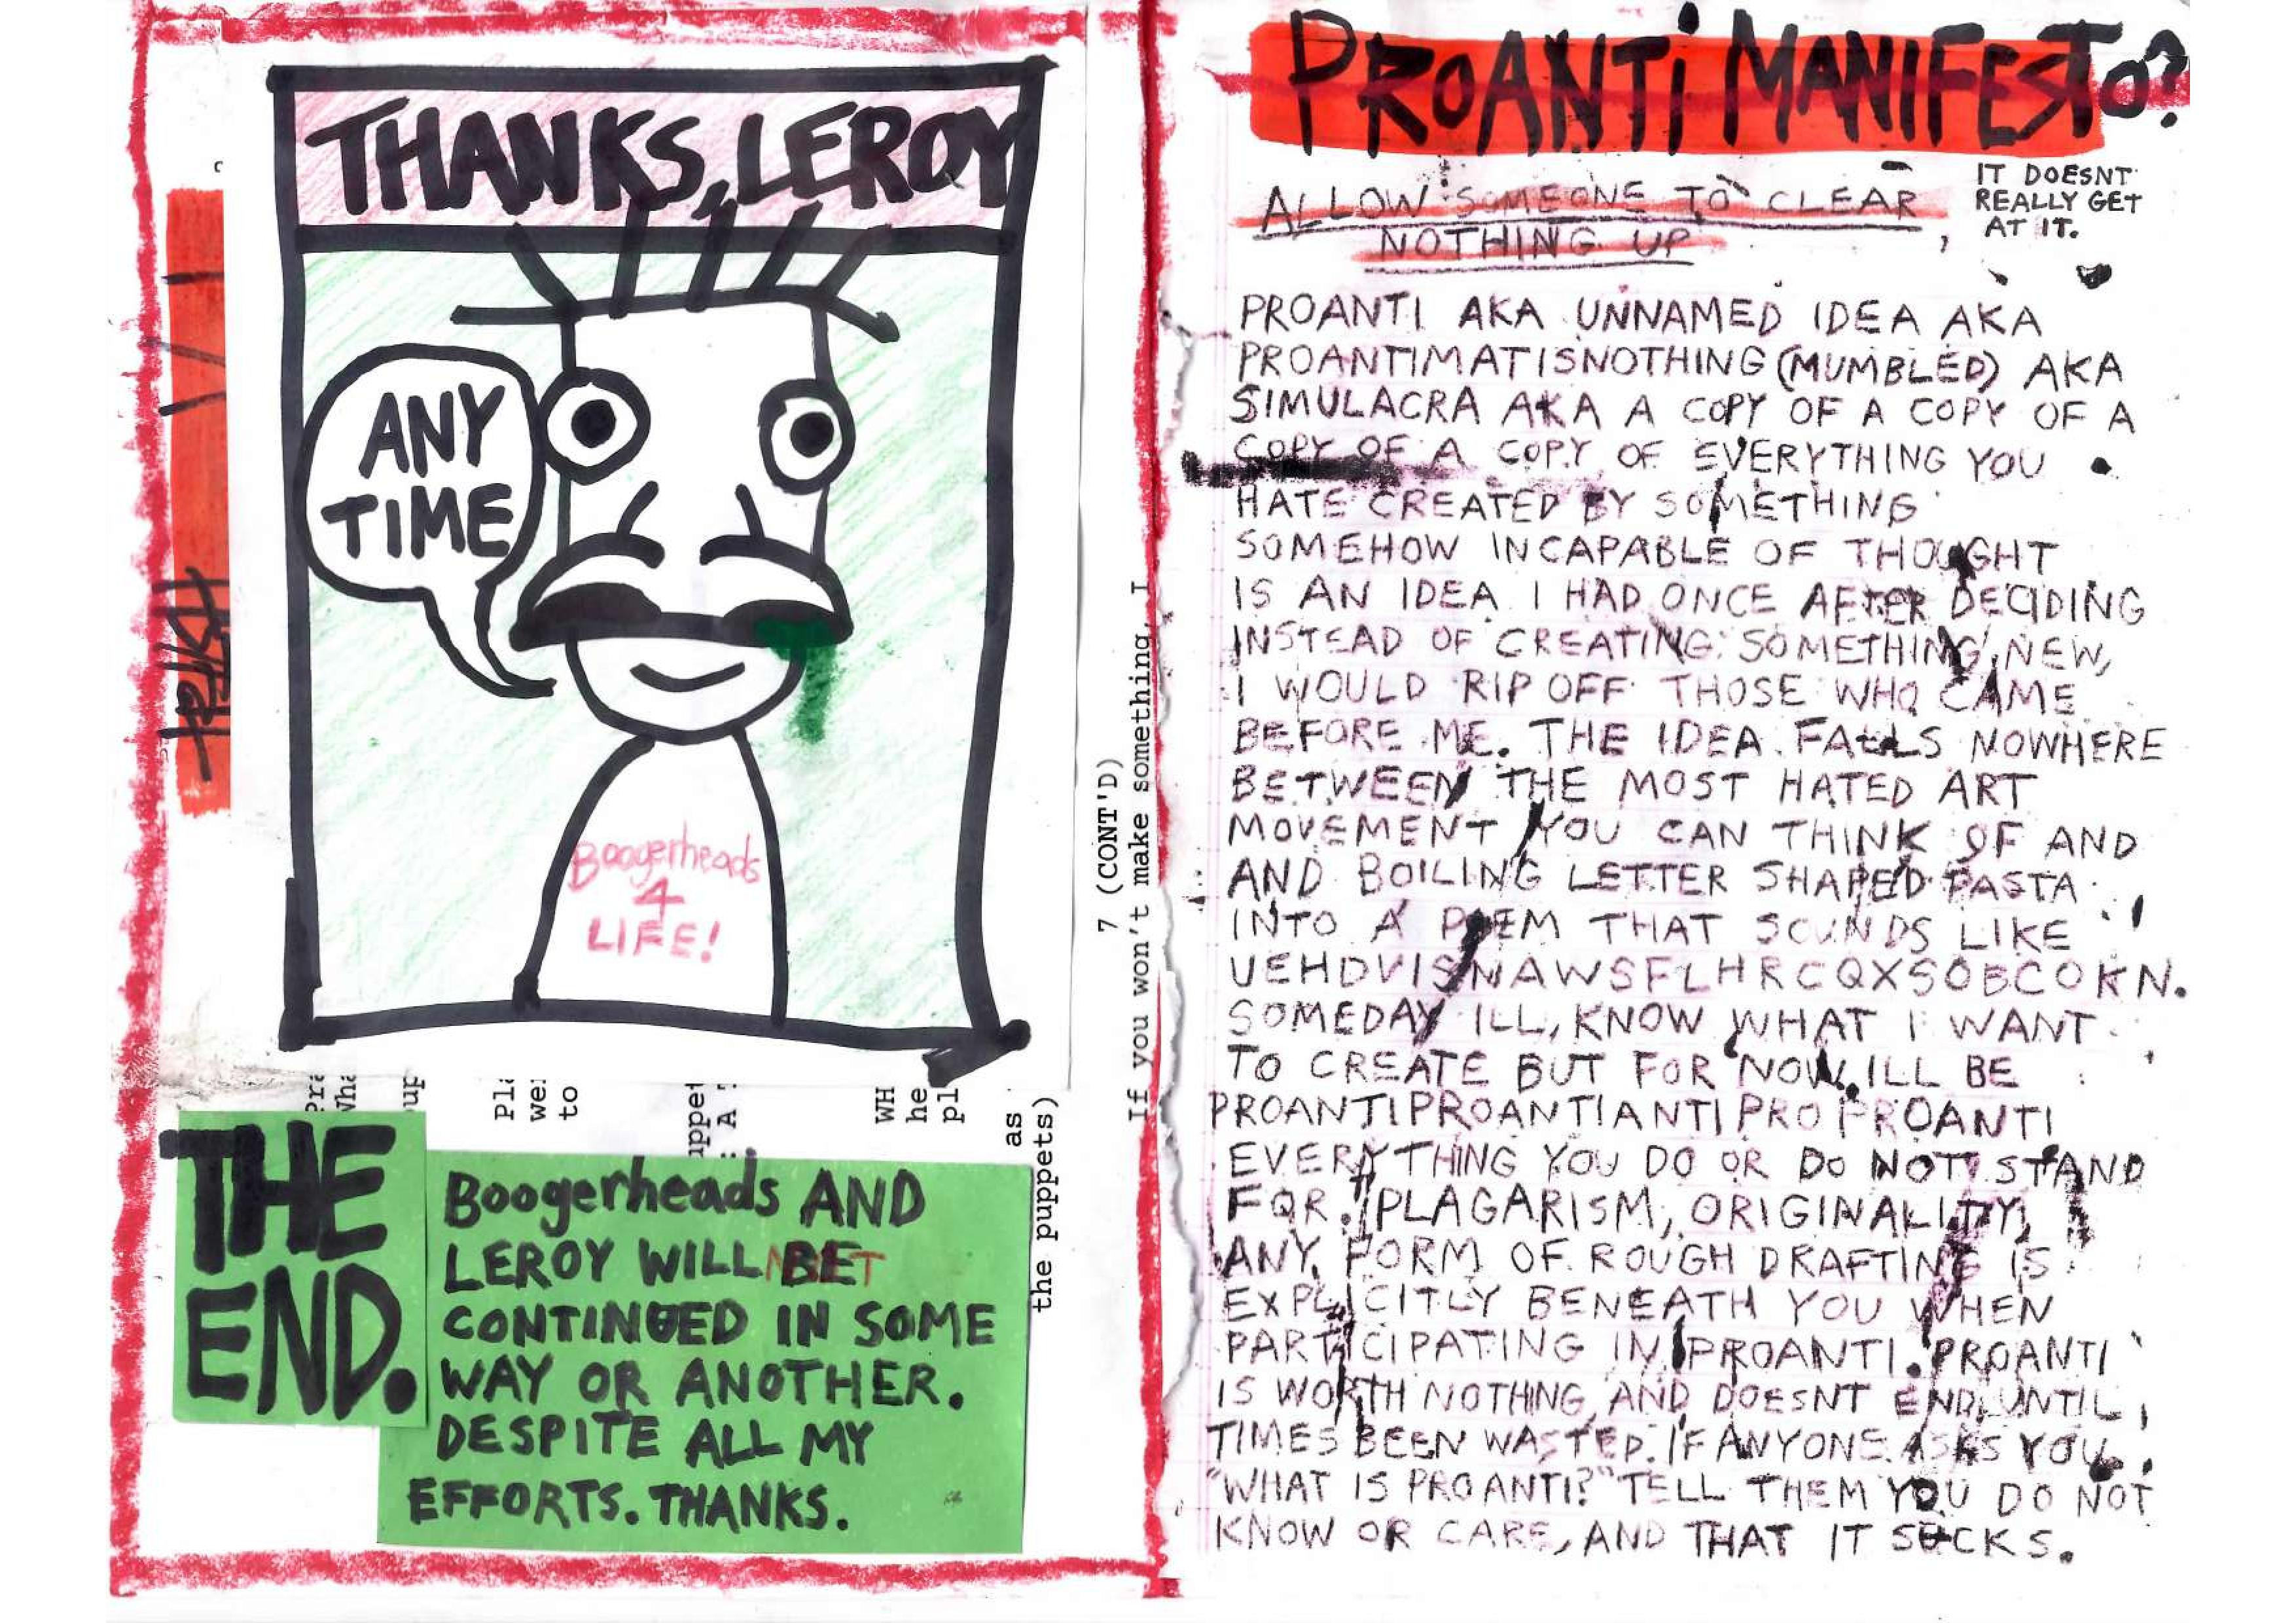 THANKS, LEROY
ANY
TIME
Boogerheads
4
LIFE!
THE
END.
Boogerheads AND
LEROY WILL BE
CONTINUED IN SOME
WAY OR ANOTHER.
DESPITE ALL MY
EFFORTS. THANKS.
to
WH
he
pl
as
the puppets)
7 (CONT'D)
If you won't make something, I
PROANTI MANIFESTO?
ALLOW SOMEONE TO CLEAR
NOTHING UP,
IT DOESNT
REALLY GET
AT IT.
PROANTI AKA UNNAMED IDEA AKA
PROANTIMATISNOTHING (MUMBLED) AKA
SIMULACRA AKA A COPY OF A COPY OF A
COPY OF A COPY OF EVERYTHING YOU
HATE CREATED BY SOMETHING
SOMEHOW INCAPABLE OF THOUGHT
IS AN IDEA I HAD ONCE AFTER DECIDING
INSTEAD OF CREATING SOMETHING NEW,
I WOULD RIP OFF THOSE WHO CAME
BEFORE ME. THE IDEA FALLS NOWHERE
BETWEEN THE MOST HATED ART
MOVEMENT YOU CAN THINK OF AND
AND BOILING LETTER SHAPED PASTA
INTO A POEM THAT SOUNDS LIKE
UEHDVISNAWSFLHRCQXSOBCOKN.
SOMEDAY ILL, KNOW WHAT I WANT
TO CREATE BUT FOR NOW ILL BE
PROANTIPROANTIANTIPROPROANTI
EVERYTHING YOU DO OR DO NOT STAND
FOR. PLAGARISM, ORIGINALITY,
ANY FORM OF ROUGH DRAFTING IS
EXPLICITLY BENEATH YOU WHEN
PARTICIPATING IN PROANTI. PROANTI
IS WORTH NOTHING, AND DOESNT END UNTIL
TIMES BEEN WASTED. IF ANYONE ASKS YOU
"WHAT IS PROANTI?" TELL THEM YOU DO NOT
KNOW OR CARE, AND THAT IT SUCKS.